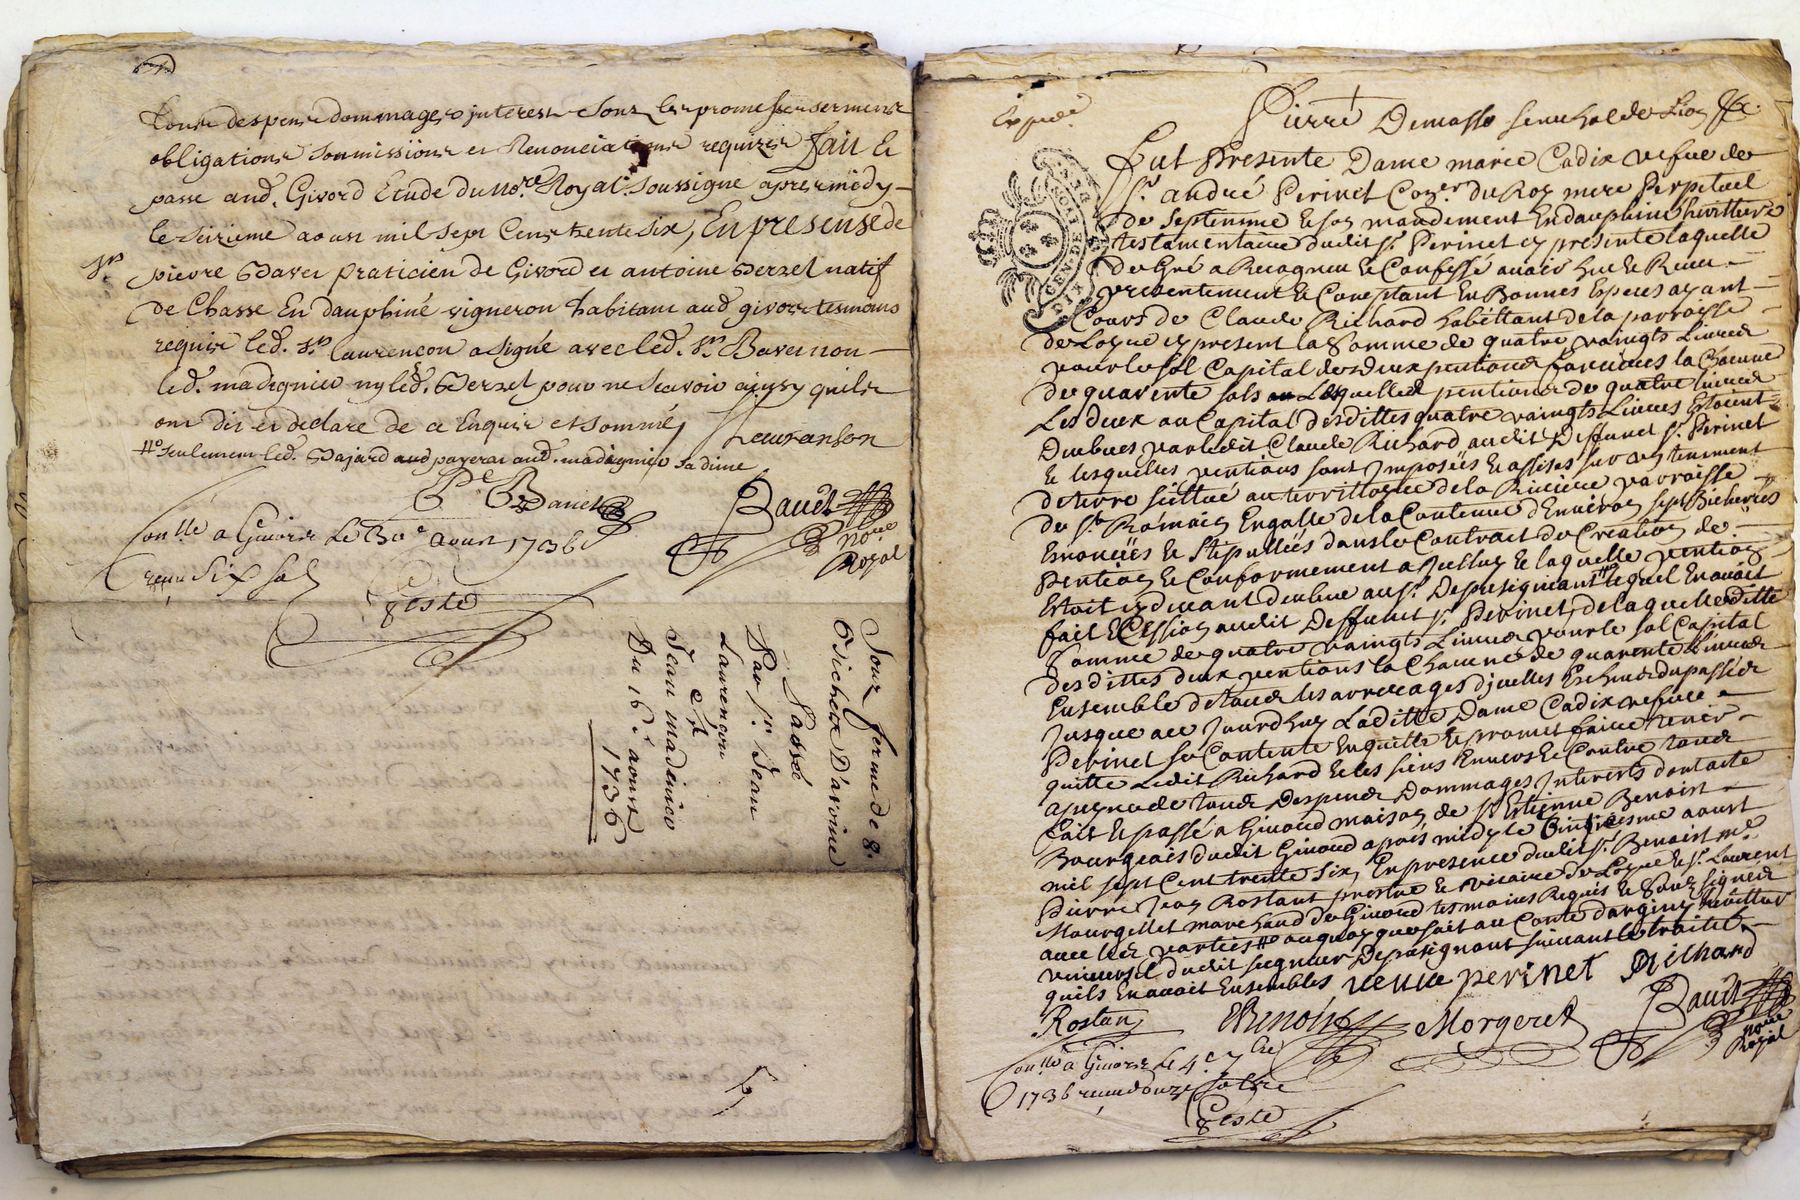 tous despens dommages interest sous les promesses serment
obligations soumissions et Renonciations requizes fait et
passé aud. Givord Etude du no.re Royal soussigné apres midy
le seizieme aoust mil sept Cens trente six, En presense de
sr. pierre Bavet praticien de Givord et antoine Berzet natif
de Chasse En dauphiné vigneron habitant aud givors tesmoins
requis led. sr. laurençon a signé avec led. sr. Bavet non
led. madignier ny led. Berzet pour ne scavoir ainsy quils
ont dit et declaré de ce Enquis et sommé,
Lauranson
seulement led. payera aud. madignier sa dime
P. Bavet
Baudt
no.re Royal
Con.llé a Givors Le 30e aoust 1736
receu six sols
Geste
Sous ferme de 8.
Bichets D'avoine
Passé
Par Sr. Jean
Laurencon
a
Jean madinier
Du 16e aoust
1736
Expédié
Pierre Demasso senechal de Lion &c.
GEN DE LION
DIX DEN
Fut Presente Dame marie Cadix vefue de
Sr. andré Perinet Con.er du Roy mere Perpetuel
de Septemme et son mandement En dauphiné heritiere
testamentaire dudit Sr. Perinet cy presente laquelle
de Gré a Recogneu et Confessé avoir heu et Receu
presentement et Comptant En Bonnes Especes ayant
Cours de Claude Richard habittant de la parroisse
de Loyre cy present la Somme de quatre vaingts Livres
pour le sol Capital des deux pentions foncieres la Chacune
de quarente sols lesquelles pentions de quatre livres
Les deux au Capital desdittes quatre vaingts Livres Estoient
Deubues par ledit Claude Richard audit Deffunct Sr. Perinet
et lesquelles pentions sont Imposées et assises sur un tenement
de terre scittué au territtoyre de la Riviere parroisse
de St. Romain En galle de la Contenue d'Environ sept Bicherées
Enoncées et Stipullées dans le Contract de Creation de
pention et Conformement a Icelluy et laquelle pention
Estoit cy devant deubue au sr. Depresignant lequel En avoit
fait Cession audit Deffunct sr. Perinet, de laquelle ditte
somme de quatre vaingts Livres pour le sol Capital
des dittes deux pentions la Chacune de quarente
Ensemble de tous les arrerages d'icelles Escheus du passé
Jusque a ce Jourdhuy Laditte Dame Cadix vefue
Perinet se Contente En quitte et promet faire tenir
quitte Ledit Richard et les siens Envers Et Contre tous
a peyne de tous Despens Dommages Interests dont acte
fait et passé a Givord maison de sr. Estienne Benoist
Bourgeois dudit Givord apres midy le aoust
mil sept Cent trente six, En presence dudit sr. Benoist mre.
Pierre Jean Rostant prestre et vicaire de Loyre et sr. Laurent
Mourgellet marchand de Givord tesmoins Requis et Sous signés
avec les parties
universel dudit seigneur Depresignant suivant le traitté
quils En avoit Ensembles, veuve perinet Richard
Rostan
EBenoist
Morgeret
Baudt
no.re Royal
Con.llé a Givors le 4e 7bre
1736 receu douze sols
Geste